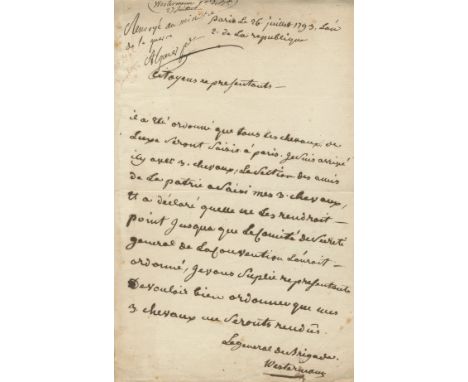 Renvoyé au ministre
de la guerre
paris Le 26 juillet 1793. L'an
2. de La republique
Citoyens representants —
il a été ordonné que tous Les chevaux de
Luxe seront saisis à paris. je suis arrivé
icy avec 3. chevaux, La section des amis
de La patrie a saisi mes 3. chevaux,
et a déclaré quelle ne Les rendroit —
point jusqua que Le Comité de sureté
general de La Convention L'auroit —
ordonné, je vous suplie representants
De vouloir bien ordonner que mes
3 chevaux me seronts rendus.
Le general de Brigade.
Westermann